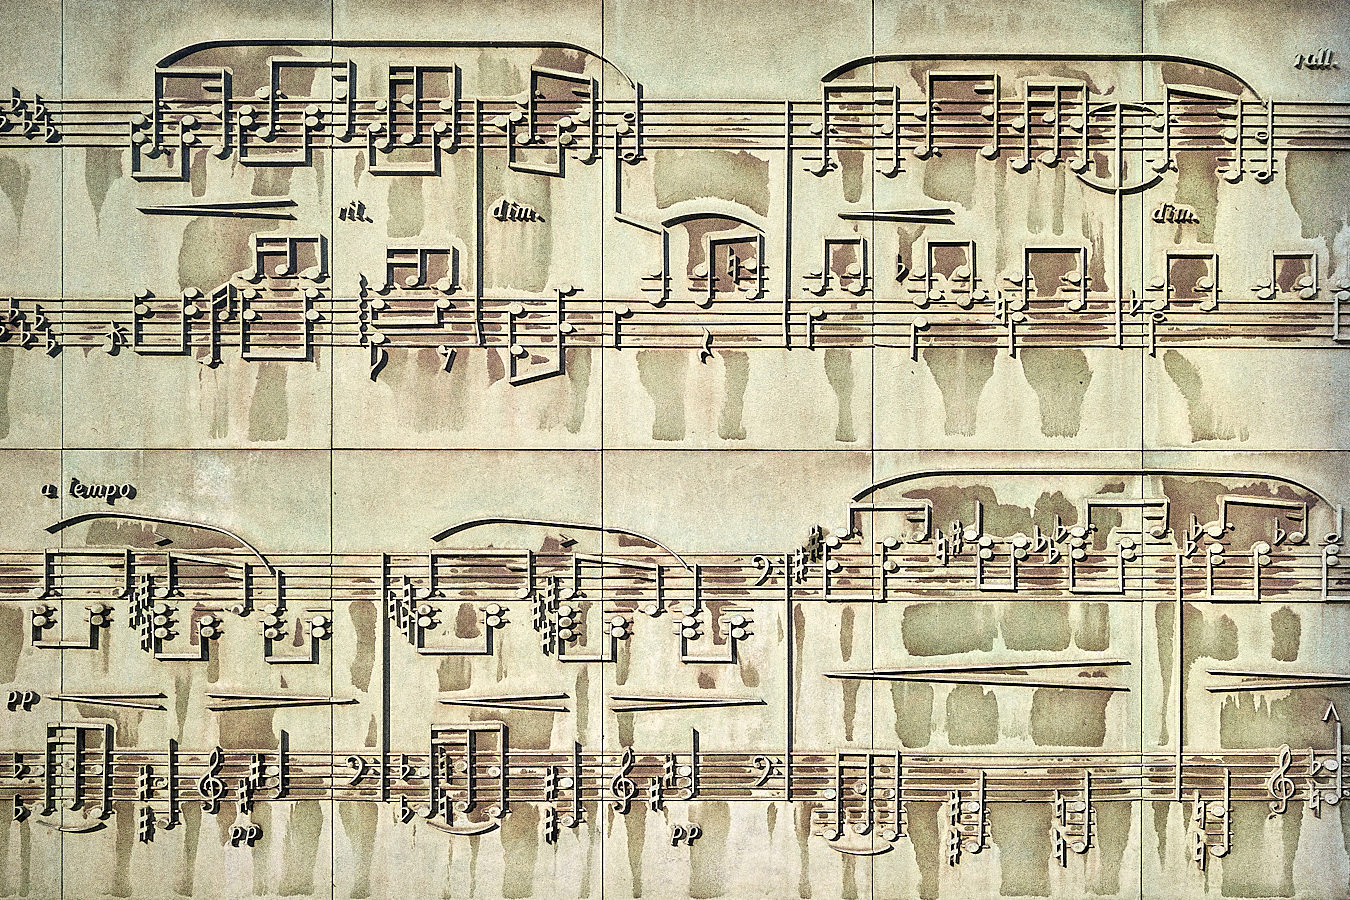 rall.
rit. dim. dim.
a tempo
pp
pp pp